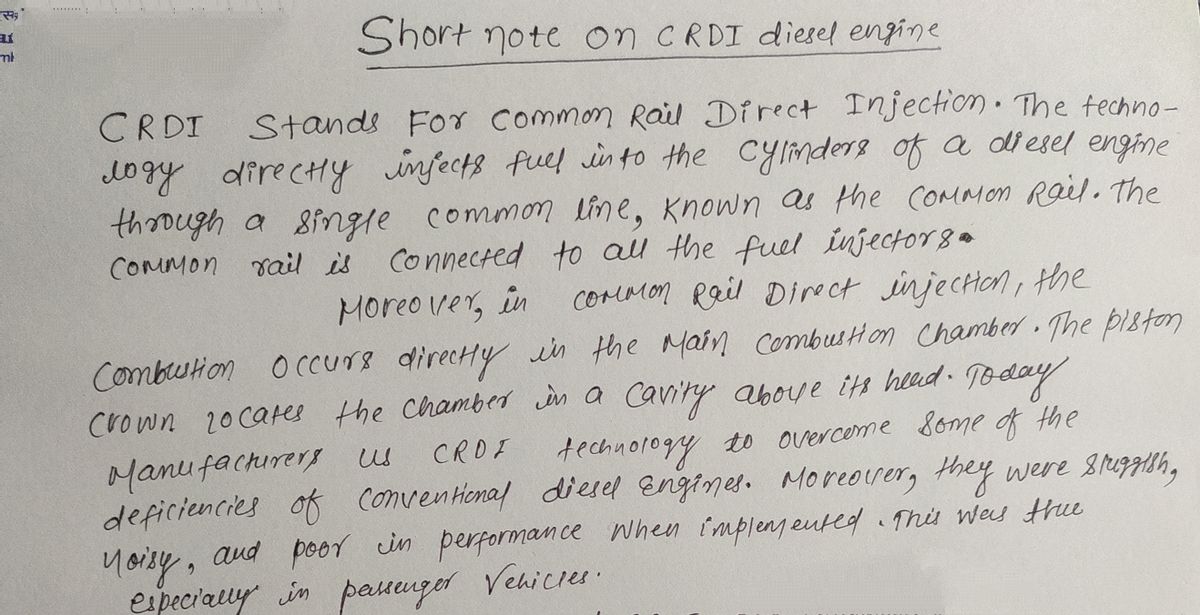 Short note on CRDI diesel engine
CRDI Stands For Common Rail Direct Injection. The techno-
logy directly injects fuel into the cylinders of a diesel engine
through a single common line, known as the common Rail. The
common rail is connected to all the fuel injectors.
Moreover, in common Rail Direct injection, the
Combustion occurs directly in the main combustion chamber. The piston
crown locates the chamber in a cavity above its head. Today
Manufacturers us CRDI technology to overcome some of the
deficiencies of conventional diesel Engines. Moreover, they were sluggish,
noisy, and poor in performance when implemented. This was true
especially in passenger vehicles.